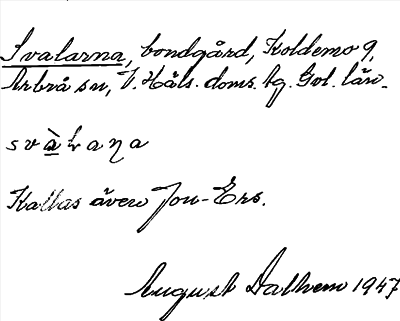 Svalarna, bondgård, Koldemo 9,
Arbrå sn, V. Häls. doms. hg. Gvl. län.
svàlaṇa
Kallas även Jon-Ers.
August Dalhem 1947